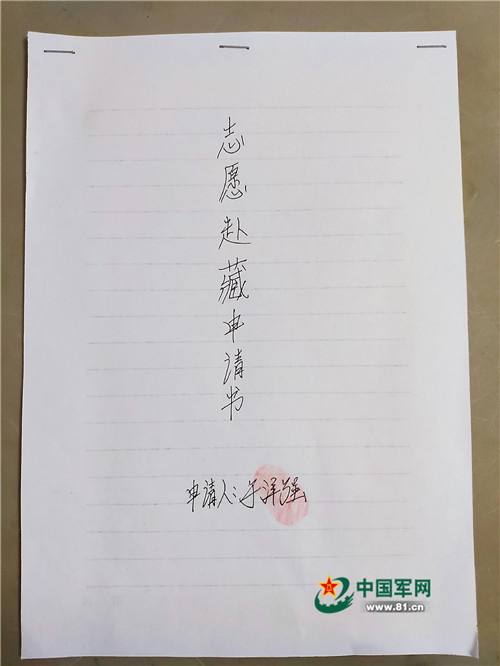 志愿赴藏申请书
申请人：于洋强
中国军网
www.81.cn